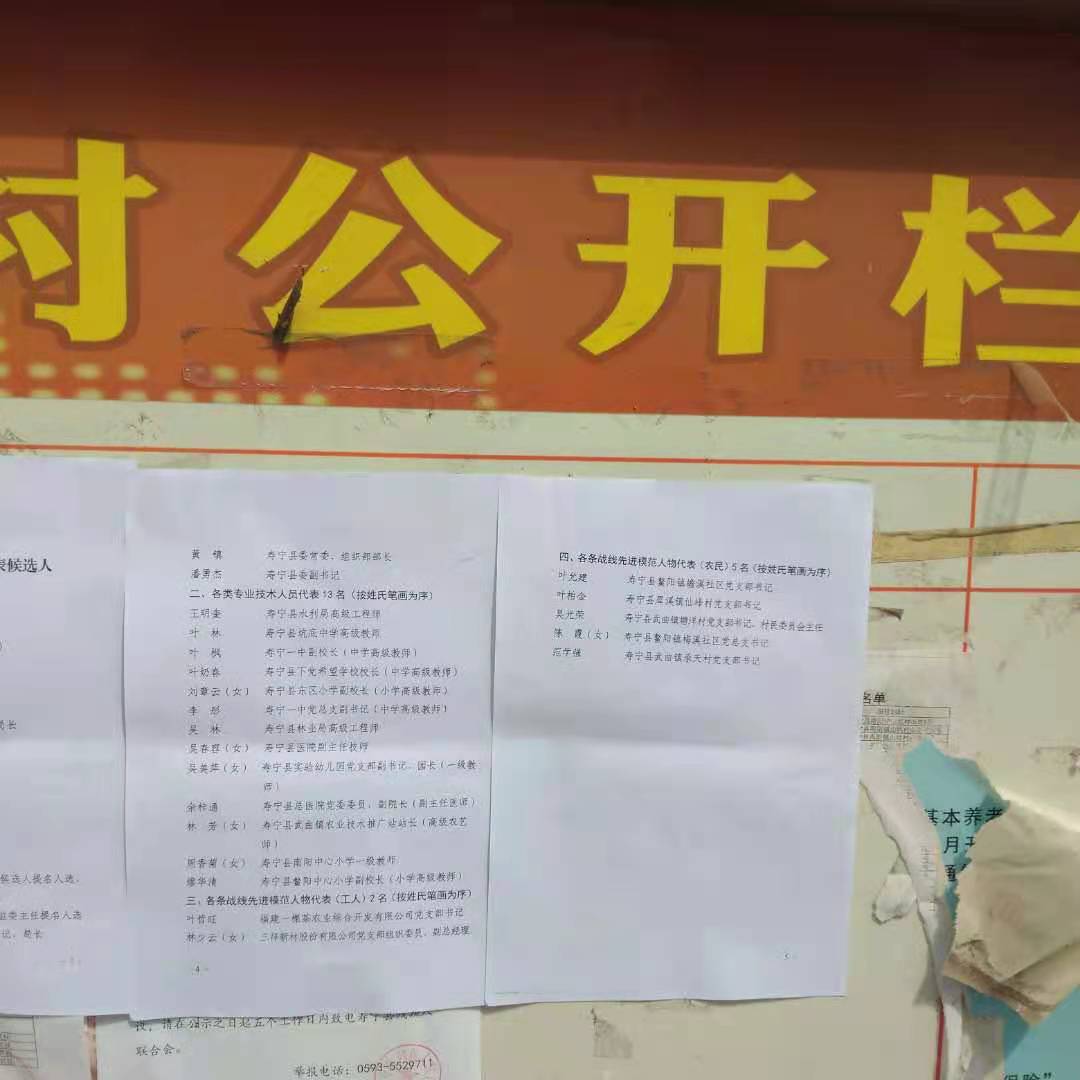 村公开栏
表候选人
局长
候选人提名人选、
监委主任提名人选
记、局长
黄 镇 寿宁县委常委、组织部部长
潘勇杰 寿宁县委副书记
二、各类专业技术人员代表 13 名（按姓氏笔画为序）
王明奎 寿宁县水利局高级工程师
叶 林 寿宁县坑底中学高级教师
叶 枫 寿宁一中副校长（中学高级教师）
叶奶春 寿宁县下党希望学校校长（中学高级教师）
刘章云（女） 寿宁县东区小学副校长（小学高级教师）
李 彤 寿宁一中党总支副书记（中学高级教师）
吴 林 寿宁县林业局高级工程师
吴春容（女） 寿宁县医院副主任技师
吴美萍（女） 寿宁县实验幼儿园党支部副书记、园长（一级教
师）
余梓通 寿宁县总医院党委委员、副院长（副主任医师）
林 芳（女） 寿宁县武曲镇农业技术推广站站长（高级农艺
师）
周香菊（女） 寿宁县南阳中心小学一级教师
缪华清 寿宁县鳌阳中心小学副校长（小学高级教师）
三、各条战线先进模范人物代表（工人）2 名（按姓氏笔画为序）
叶哲旺 福建一棵茶农业综合开发有限公司党支部书记
林少云（女） 三祥新材股份有限公司党支部组织委员、副总经理
- 4 -
四、各条战线先进模范人物代表（农民）5 名（按姓氏笔画为序）
叶允建 寿宁县鳌阳镇蟾溪社区党支部书记
叶柏全 寿宁县犀溪镇仙峰村党支部书记
吴光荣 寿宁县武曲镇塘洋村党支部书记、村民委员会主任
陈 霞（女） 寿宁县鳌阳镇梅溪社区党总支书记
范学健 寿宁县武曲镇承天村党支部书记
5 -
名单
基本养老
月
通
保险”
议，请在公示之日起五个工作日内致电寿宁县
联合会。
举报电话：0593-5529711